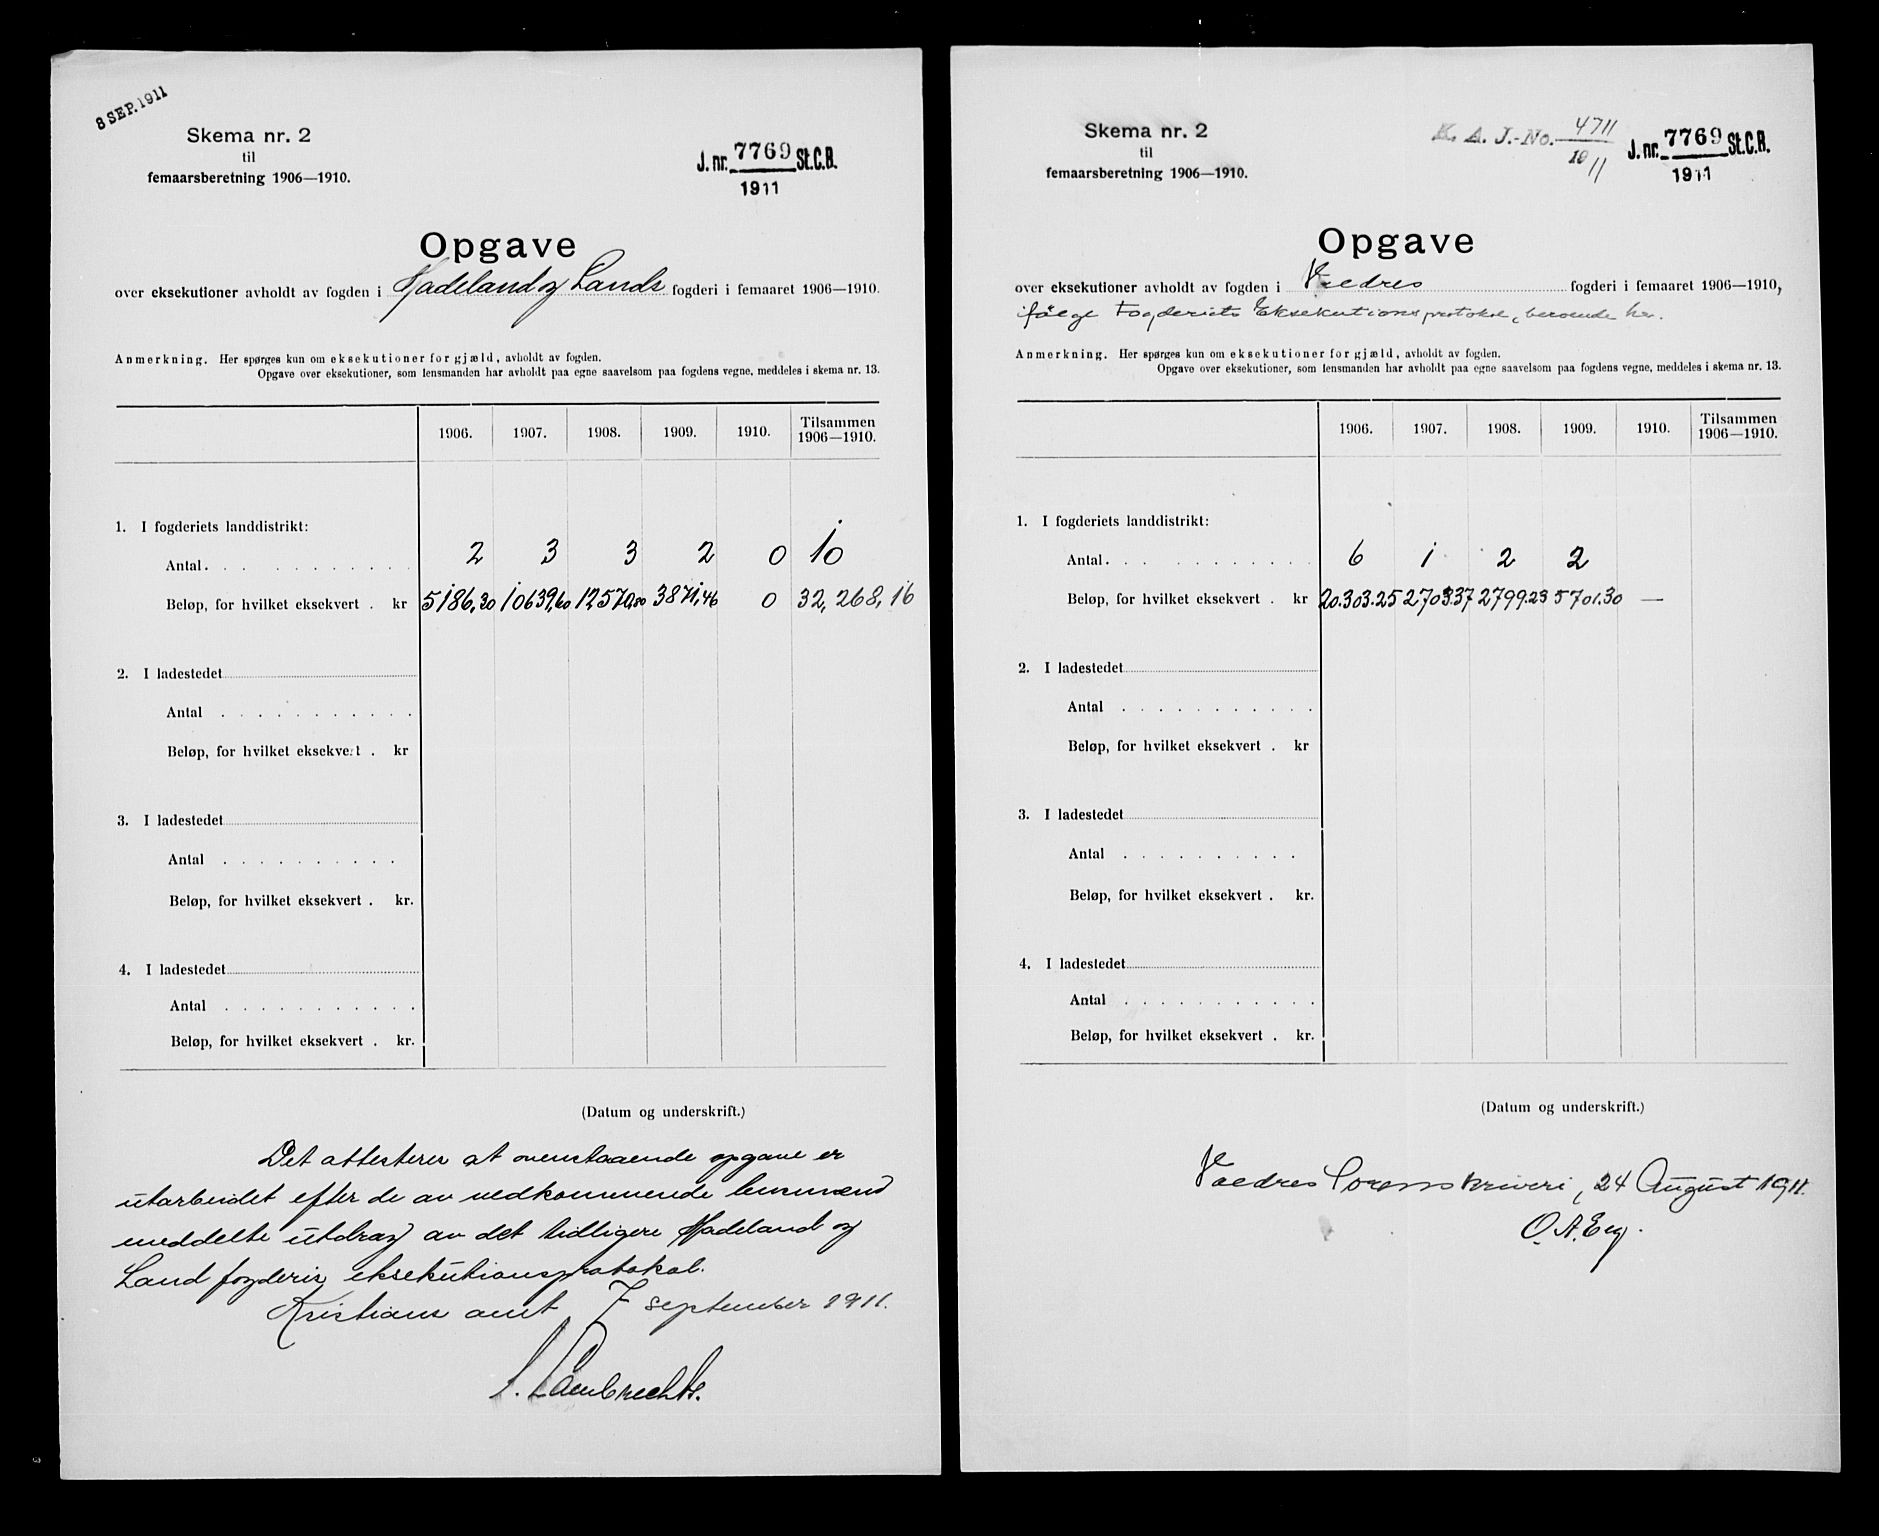 8 SEP. 1911
Skema nr. 2
til
femaarsberetning 1906—1910.
J. nr. 7769 St.C.B.
1911
Opgave
over eksekutioner avholdt av fogden i Hadeland og Lands fogderi i femaaret 1906—1910.
Anmerkning. Her spørges kun om eksekutioner for gjæld, avholdt av fogden.
Opgave over eksekutioner, som lensmanden har avholdt paa egne saavelsom paa fogdens vegne, meddeles i skema nr. 13.
1906. 1907. 1908. 1909. 1910. Tilsammen 1906—1910.
1. I fogderiets landdistrikt:
Antal 2 3 3 2 0 10
Beløp, for hvilket eksekvert . kr 5186,30 10639,60 12570,80 3871,46 0 32,268,16
2. I ladestedet
Antal
Beløp, for hvilket eksekvert . kr
3. I ladestedet
Antal
Beløp, for hvilket eksekvert . kr.
4. I ladestedet
Antal
Beløp, for hvilket eksekvert . kr.
(Datum og underskrift.)
Det attesteres at ovenstaaende opgave er
utarbeidet efter de av vedkommende lensmænd
meddelte utdrag av det tidligere Hadeland og
Land fogderis eksekutionsprotokol.
Kristians amt 7 september 1911.
Lambrechts.
Skema nr. 2
til
femaarsberetning 1906—1910.
K. A. J.-No. 4711
1911
J. nr. 7769 St.C.B.
1911
Opgave
over eksekutioner avholdt av fogden i Valdres fogderi i femaaret 1906—1910,
ifølge Fogderiets Eksekutionsprotokol, beroende her.
Anmerkning. Her spørges kun om eksekutioner for gjæld, avholdt av fogden.
Opgave over eksekutioner, som lensmanden har avholdt paa egne saavelsom paa fogdens vegne, meddeles i skema nr. 13.
1906. 1907. 1908. 1909. 1910. Tilsammen 1906—1910.
1. I fogderiets landdistrikt:
Antal 6 1 2 2
Beløp, for hvilket eksekvert . kr 20.303.25 2703.37 2799.23 5701.30 —
2. I ladestedet
Antal
Beløp, for hvilket eksekvert . kr
3. I ladestedet
Antal
Beløp, for hvilket eksekvert . kr.
4. I ladestedet
Antal
Beløp, for hvilket eksekvert . kr.
(Datum og underskrift.)
Valdres Sorenskriveri, 24 August 1911.
O. A. Eeg.